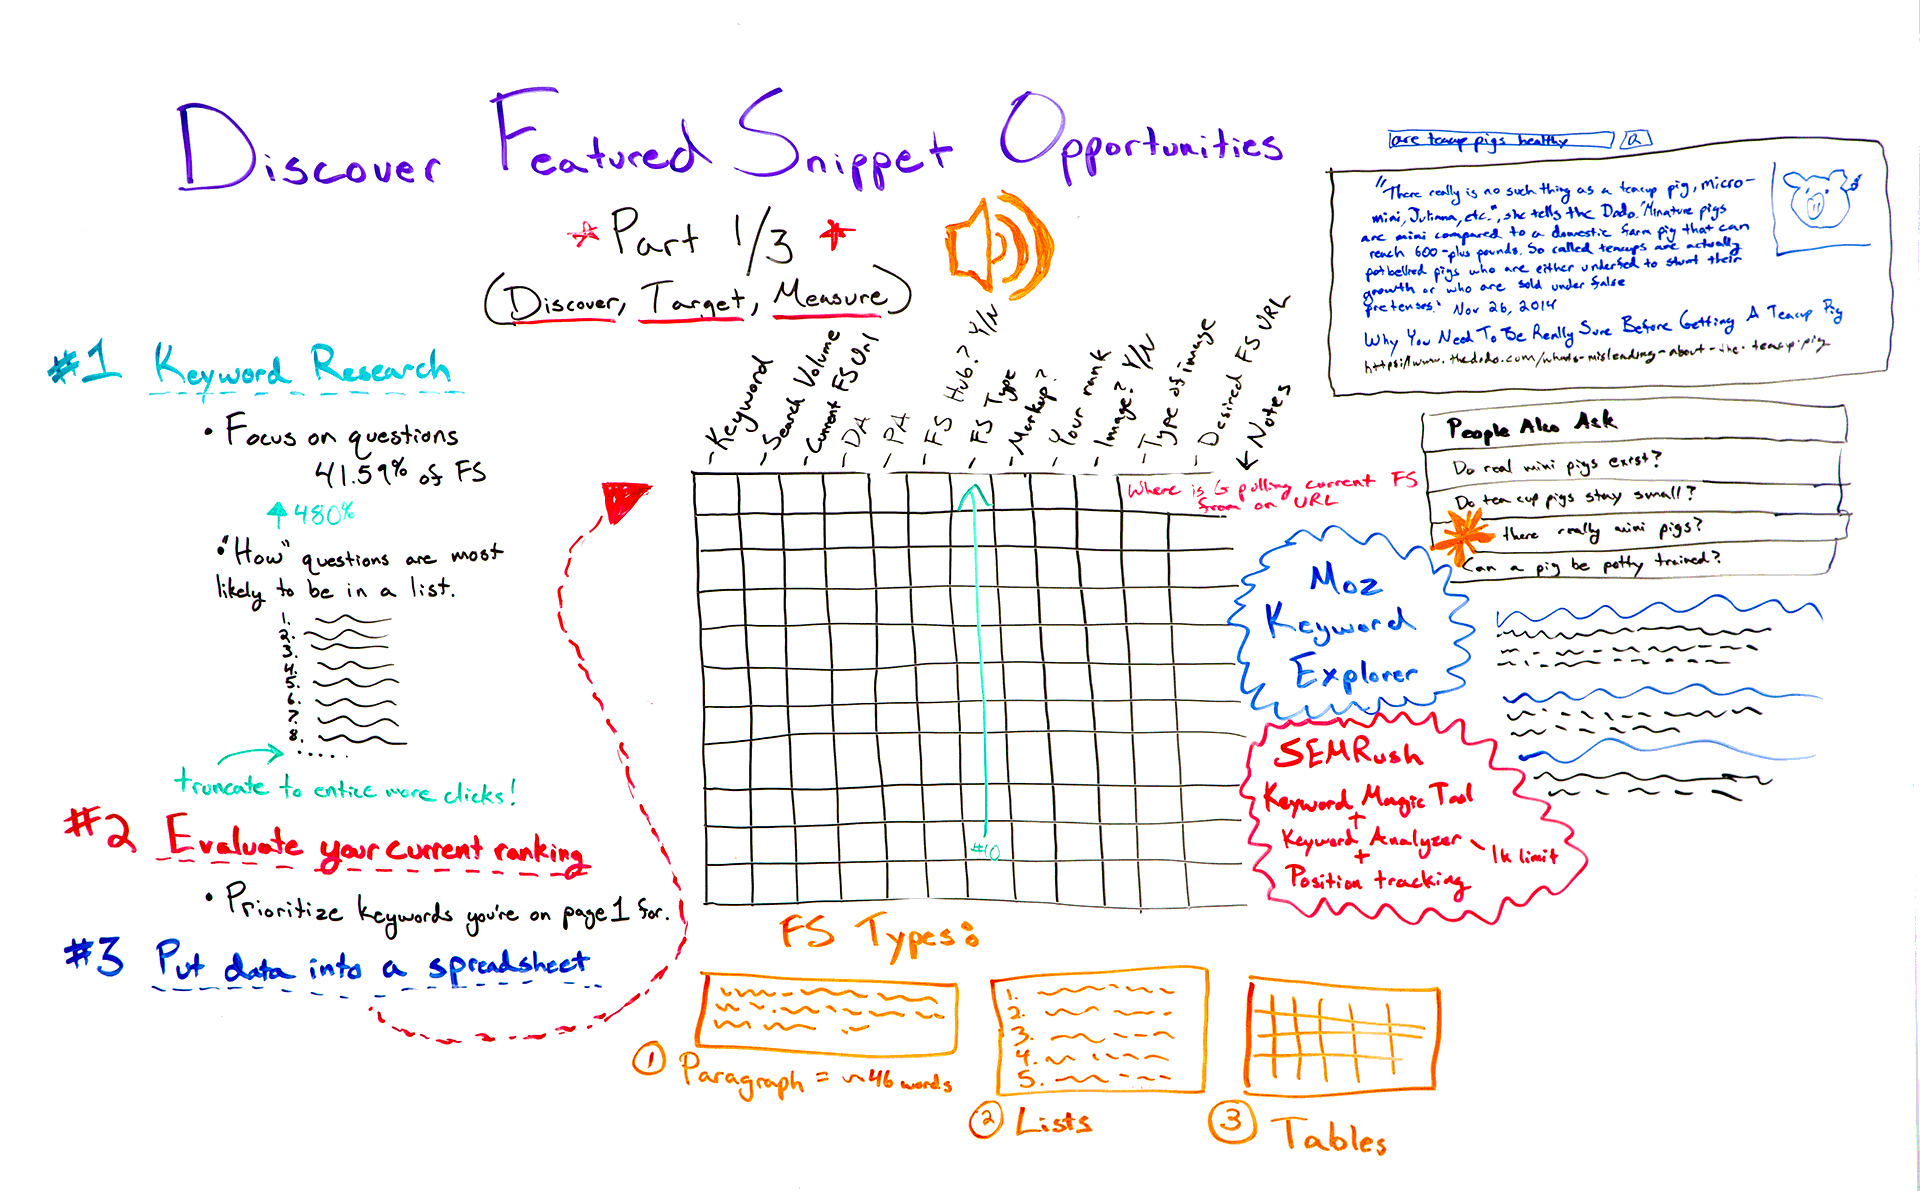 Discover Featured Snippet Opportunities
* Part 1/3 *
(Discover, Target, Measure)
#1 Keyword Research
• Focus on questions
41.59% of FS
↑ 480%
• "How" questions are most
likely to be in a list.
1.
2.
3.
4.
5.
6.
7.
8.
.....
truncate to entice more clicks!
#2 Evaluate your current ranking
• Prioritize keywords you're on page 1 for.
#3 Put data into a spreadsheet
- Keyword
- Search Volume
- Current FS Url
- DA
- PA
- FS Hub? Y/N
- FS Type
- Markup?
- Your rank
- Image? Y/N
- Type of image
- Desired FS URL
← Notes
Where is G pulling current FS
from on URL
#10
FS Types:
1 Paragraph = ~46 words
1.
2.
3.
4.
5.
2 Lists
3 Tables
are teacup pigs healthy
"There really is no such thing as a teacup pig, micro-
mini, Juliana, etc.", she tells the Dodo. "Minature pigs
are mini compared to a domestic farm pig that can
reach 600-plus pounds. So called teacups are actually
potbellied pigs who are either underfed to stunt their
growth or who are sold under false
pretenses." Nov 26, 2014
Why You Need To Be Really Sure Before Getting A Teacup Pig
https://www.thedodo.com/whats-misleading-about-the-teacup-pig
People Also Ask
Do real mini pigs exist?
Do tea cup pigs stay small?
there really mini pigs?
Can a pig be potty trained?
Moz
Keyword
Explorer
SEMRush
Keyword Magic Tool
+
Keyword Analyzer - 1k limit
+
Position tracking